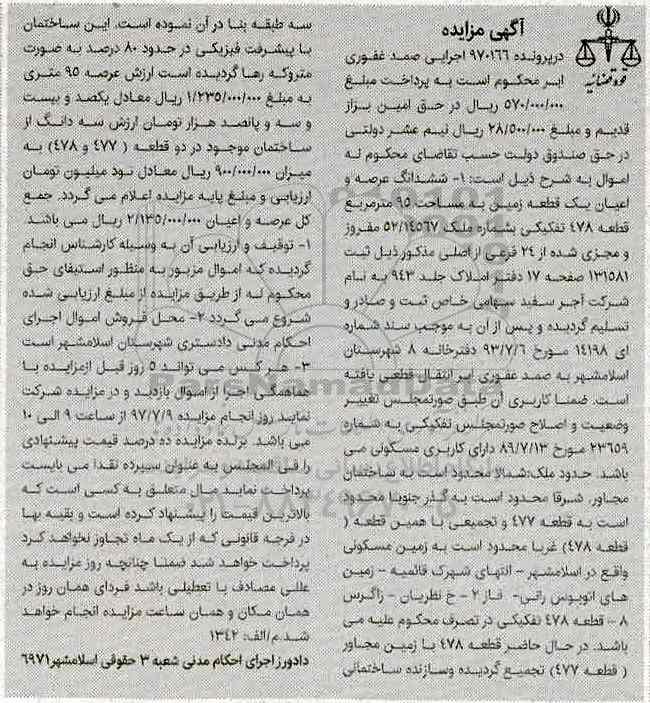 آگهی مزایده
قوه قضائیه
درپرونده ۹۷۰۱۶۶ اجرایی صمد غفوری
ابر محکوم است به پرداخت مبلغ
۵۷۰/۰۰۰/۰۰۰ ریال در حق امین بزاز
قدیم و مبلغ ۲۸/۵۰۰/۰۰۰ ریال نیم عشر دولتی
در حق صندوق دولت حسب تقاضای محکوم له
اموال به شرح ذیل است: ۱- ششدانگ عرصه و
اعیان یک قطعه زمین به مساحت ۹۵ مترمربع
قطعه ۴۷۸ تفکیکی بشماره ملک ۵۲/۱۴۵۶۷ مفروز
و مجزی شده از ۲۴ فرعی از اصلی مذکور ذیل ثبت
۱۳۱۵۸۱ صفحه ۱۷ دفتر املاک جلد ۹۴۳ به نام
شرکت آجر سفید سهامی خاص ثبت و صادر و
تسلیم گردیده و پس از آن به موجب سند شماره
ای ۱۴۱۹۸ مورخ ۹۳/۷/۶ دفترخانه ۸ شهرستان
اسلامشهر به صمد غفوری ابر انتقال قطعی یافته
است. ضمنا کاربری آن طبق صورتمجلس تغییر
وضعیت و اصلاح صورتمجلس تفکیکی به شماره
۲۳۶۵۹ مورخ ۸۹/۷/۱۳ دارای کاربری مسکونی می
باشد. حدود ملک:شمالا محدود است به ساختمان
مجاور، شرقا محدود است به گذر جنوبا محدود
است به قطعه ۴۷۷ و تجمیعی با همین قطعه (
قطعه ۴۷۸) غربا محدود است به زمین مسکونی
واقع در اسلامشهر – انتهای شهرک قائمیه – زمین
های اتوبوس رانی- فاز ۲ – خ نظریان – زاگرس
۸ – قطعه ۴۷۸ تفکیکی در تصرف محکوم علیه می
باشد. در حال حاضر قطعه ۴۷۸ با زمین مجاور
( قطعه ۴۷۷) تجمیع گردیده وسازنده ساختمانی
سه طبقه بنا در آن نموده است. این ساختمان
با پیشرفت فیزیکی در حدود ۸۰ درصد به صورت
متروکه رها گردیده است ارزش عرصه ۹۵ متری
به مبلغ ۱/۲۳۵/۰۰۰/۰۰۰ ریال معادل یکصد و بیست
و سه و پانصد هزار تومان ارزش سه دانگ از
ساختمان موجود در دو قطعه ( ۴۷۷ و ۴۷۸) به
میزان ۹۰۰/۰۰۰/۰۰۰ ریال معادل نود میلیون تومان
ارزیابی و مبلغ پایه مزایده اعلام می گردد. جمع
کل عرصه و اعیان ۲/۱۳۵/۰۰۰/۰۰۰ ریال می باشد
۱- توقیف و ارزیابی آن به وسیله کارشناس انجام
گردیده که اموال مزبور به منظور استیفای حق
محکوم له از طریق مزایده از مبلغ ارزیابی شده
شروع می گردد ۲- محل فروش اموال اجرای
احکام مدنی دادستری شهرستان اسلامشهر است
۳- هر کس می تواند ۵ روز قبل ازمزایده با
هماهنگی اجرا از اموال بازدید و در مزایده شرکت
نمایند روز انجام مزایده ۹۷/۷/۹ از ساعت ۹ الی ۱۰
می باشد. برنده مزایده ده درصد قیمت پیشنهادی
را فی المجلس به عنوان سپرده نقدا می بایست
پرداخت نماید مال متعلق به کسی است که
بالاترین قیمت را پیشنهاد کرده است و بقیه بها
در فرجه قانونی که از یک ماه تجاوز نخواهد کرد
پرداخت خواهد شد ضمنا چنانچه روز مزایده به
عللی مصادف با تعطیلی باشد فردای همان روز در
همان مکان و همان ساعت مزایده انجام خواهد
شد.م/الف: ۱۳۴۲
دادورز اجرای احکام مدنی شعبه ۳ حقوقی اسلامشهر۶۹۷۱